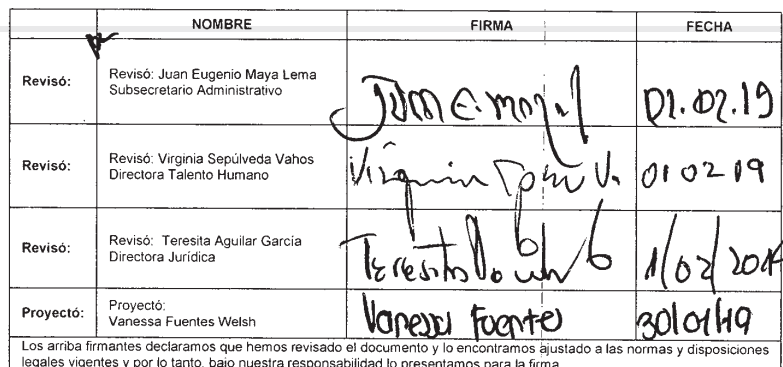 NOMBRE FIRMA FECHA
Revisó: Revisó: Juan Eugenio Maya Lema
Subsecretario Administrativo
Juan E. Maya L 01.02.19
Revisó: Revisó: Virginia Sepúlveda Vahos
Directora Talento Humano
Virginia V. 01 02 19
Revisó: Revisó: Teresita Aguilar García
Directora Jurídica
Teresita 1/02/
Proyectó: Proyectó:
Vanessa Fuentes Welsh
Vanessa Fuentes 30/01/19
Los arriba firmantes declaramos que hemos revisado el documento y lo encontramos ajustado a las normas y disposiciones
legales vigentes y por lo tanto, bajo nuestra responsabilidad lo presentamos para la firma.